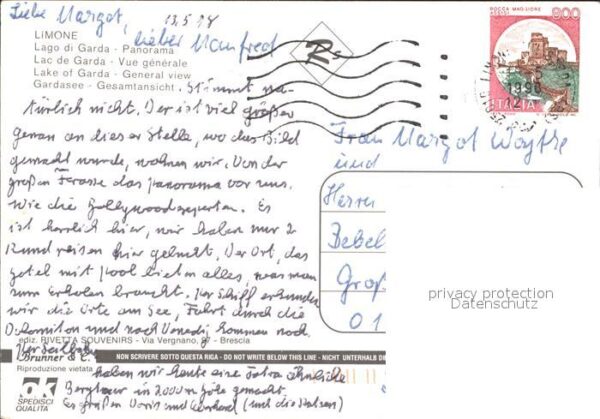 Liebe Margot, 13.5.98
lieber Manfred
LIMONE
Lago di Garda - Panorama
Lac de Garda - Vue générale
Lake of Garda - General view
Gardasee - Gesamtansicht. Stimmt na-
türlich nicht. Der ist viel größer
Genau an dieser Stelle, wo das Bild
gemacht wurde, wohnen wir. Von der
großen Terasse das Panorama vor uns.
Wie die Hollywood Es
ist herrlich hier, wir haben nur 2
Rundreisen hier gebucht. Der Ort, das
Hotel mit Pool bieten alles, was man
zum Erholen braucht. Per Schiff erkunden
wir die Orte am See, Fahrt durch die
Dolomiten und nach Venedig kommen noch.
ediz. RIVETTA SOUVENIRS - Via Vergnano, 87 - Brescia
Brunner & C.
NON SCRIVERE SOTTO QUESTA RIGA - DO NOT WRITE BELOW THIS LINE - NICHT UNTERHALB
Riproduzione vietata
haben wir heute eine Tatra ähnliche
Bergtour in 2000 m Höhe gemacht.
Es grüßen Doris und
ok
SPEDISCI
QUALITÀ
ROCCA MAGGIORE
ASSISI
800
ITALIA
Frau Margot
und
Herrn
Bebel
Groß
01
privacy protection
Datenschutz